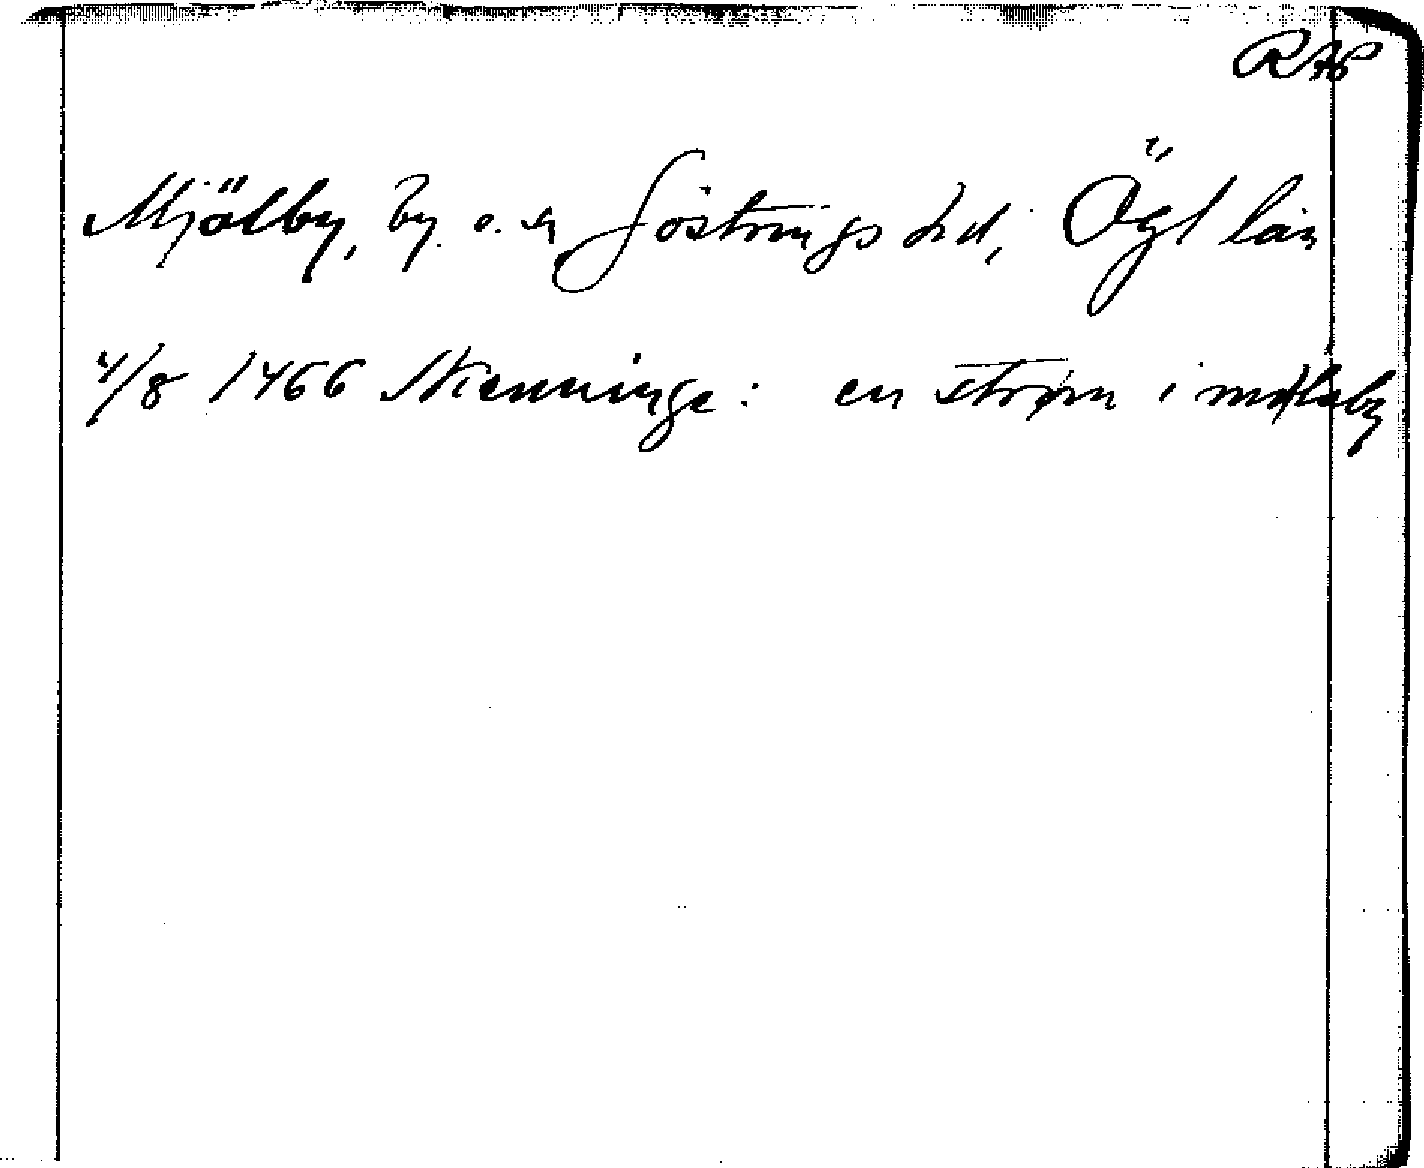 RAP
Mjölby, by. o. sn Göstrings hd, Ögl län
4/8 1466 Skenninge: en strøm i mølleby